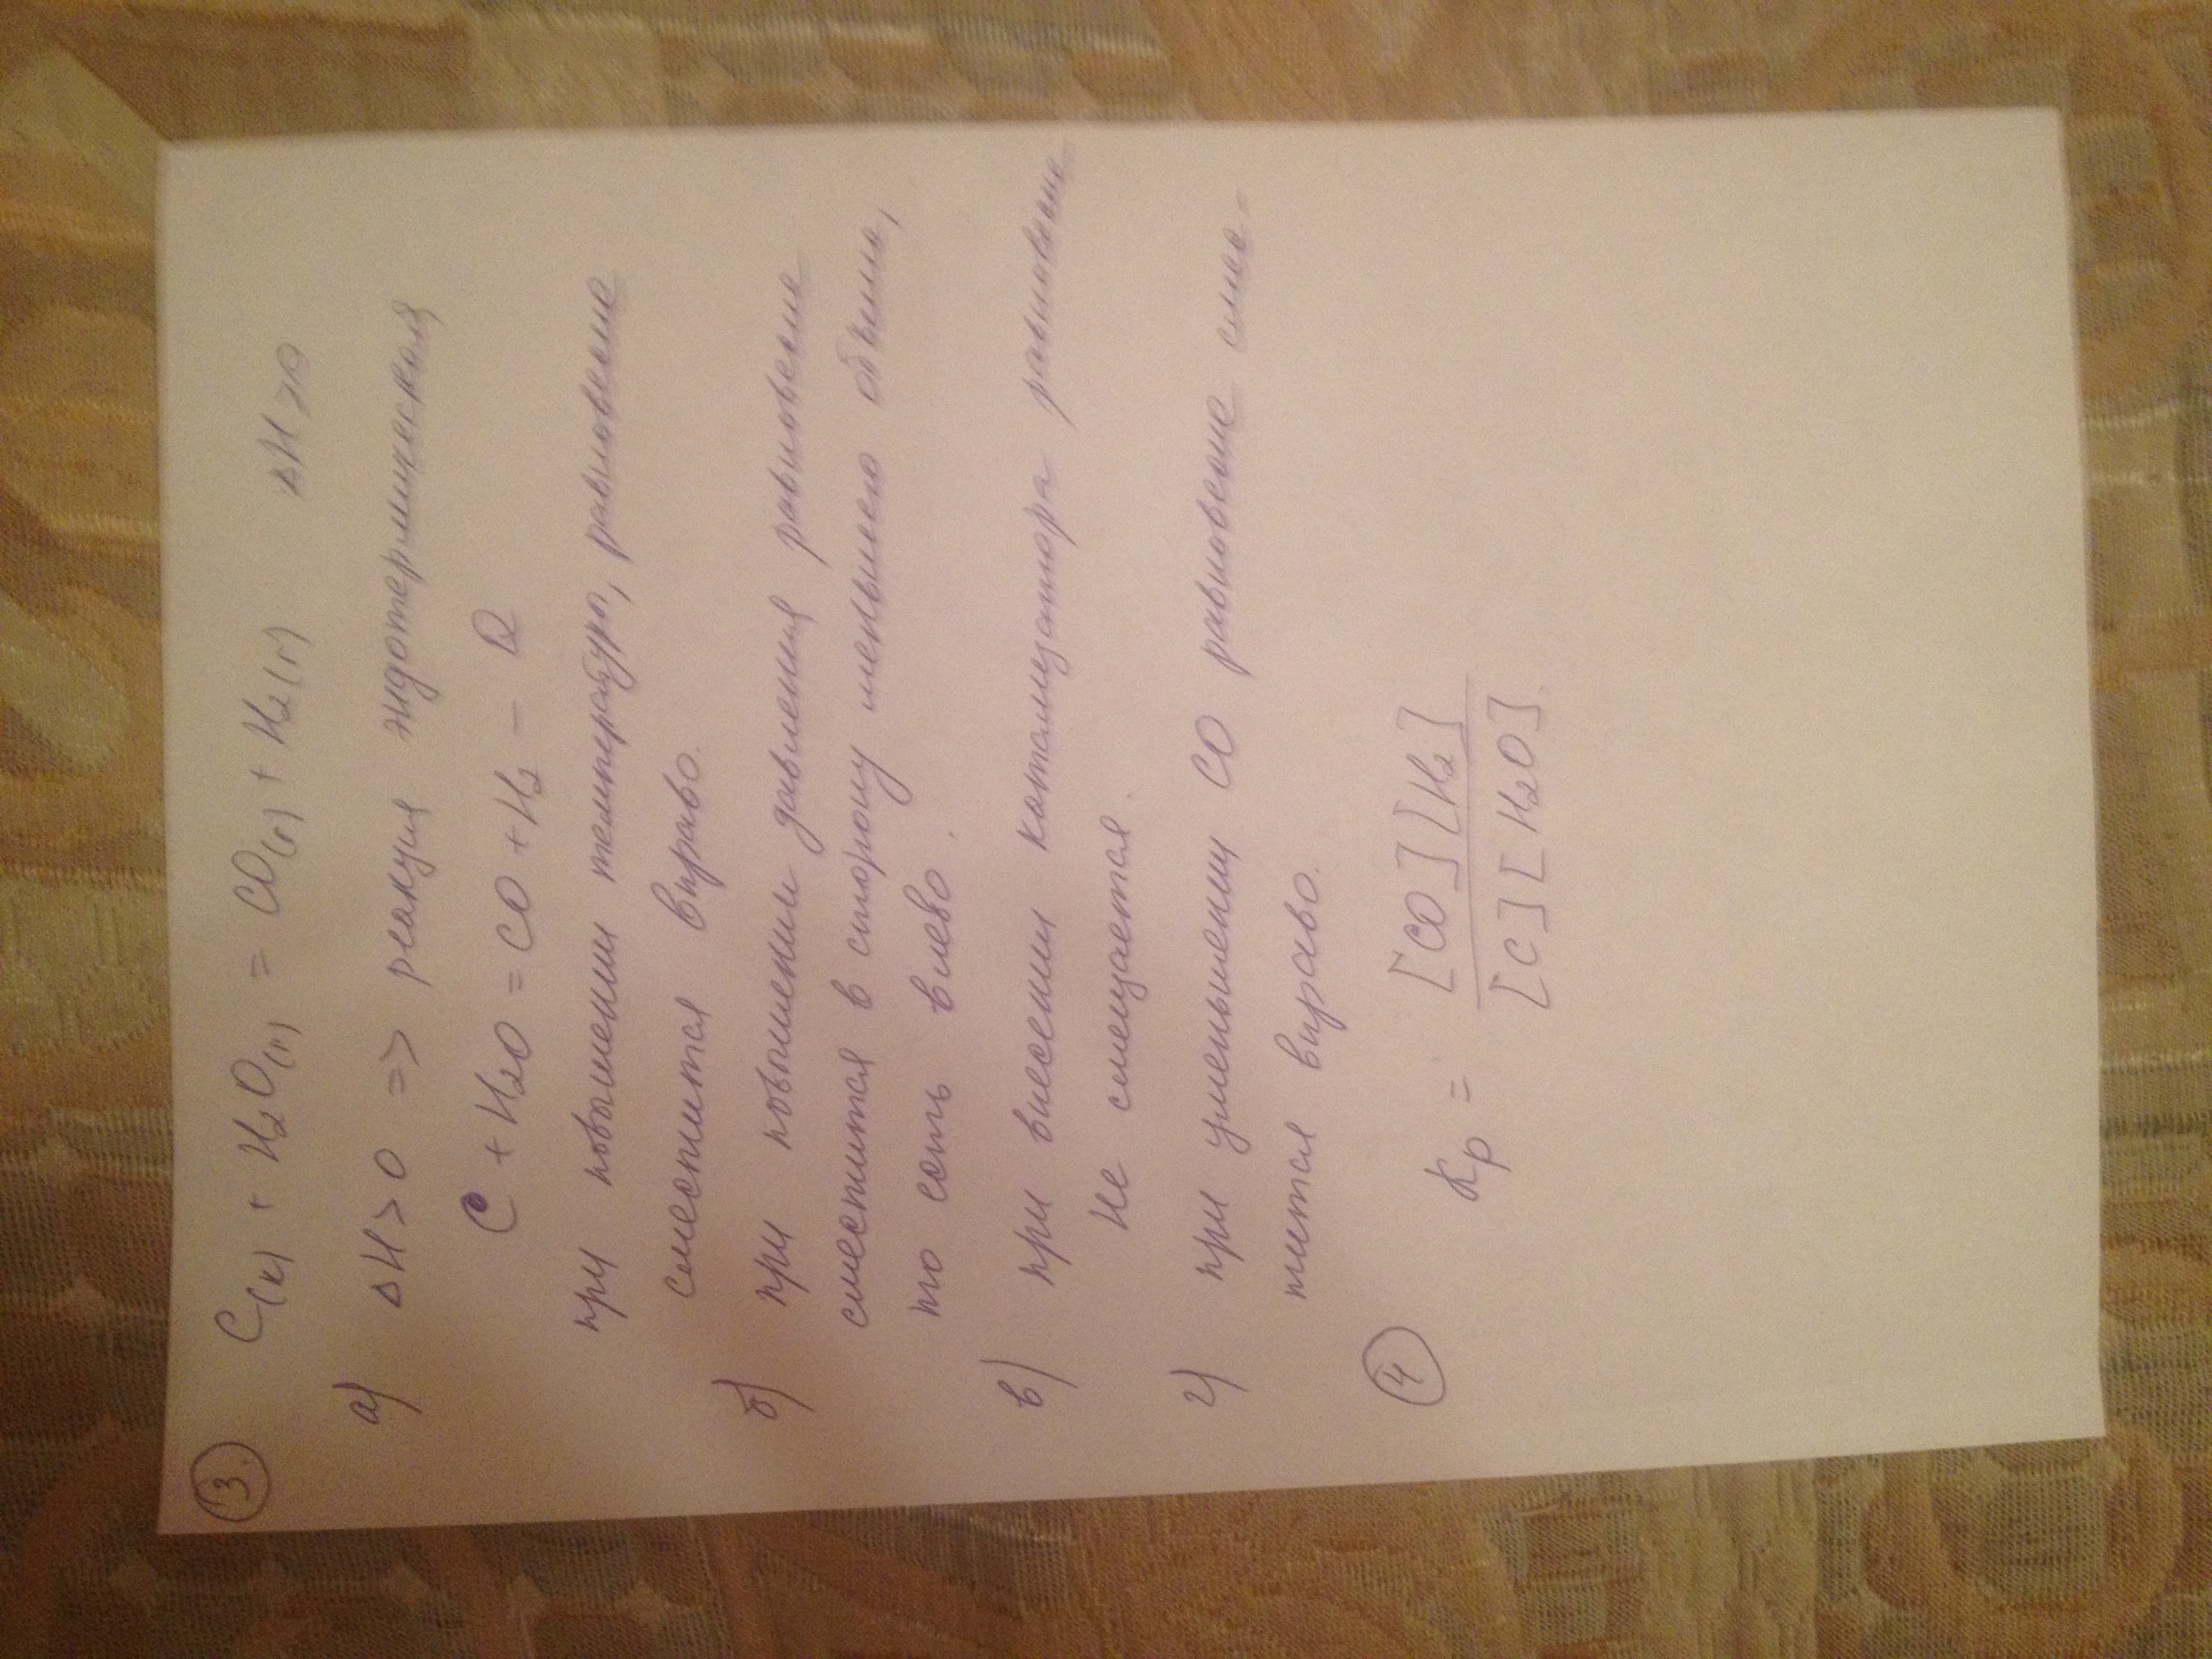 3. C(к) + H₂O(г) = CO(г) + H₂(г) ΔH>0
а) ΔH>0 => реакция эндотермическая
C + H₂O = CO + H₂ – Q
при повышении температуры, равновесие
сместится вправо.
б) при повышении давления равновесие
сместится в сторону меньшего объёма,
то есть влево.
в) при внесении катализатора равновесие
не смещается.
г) при уменьшении CO равновесие смес-
тится вправо.
4 Kp = [CO][H₂] / [C][H₂O].